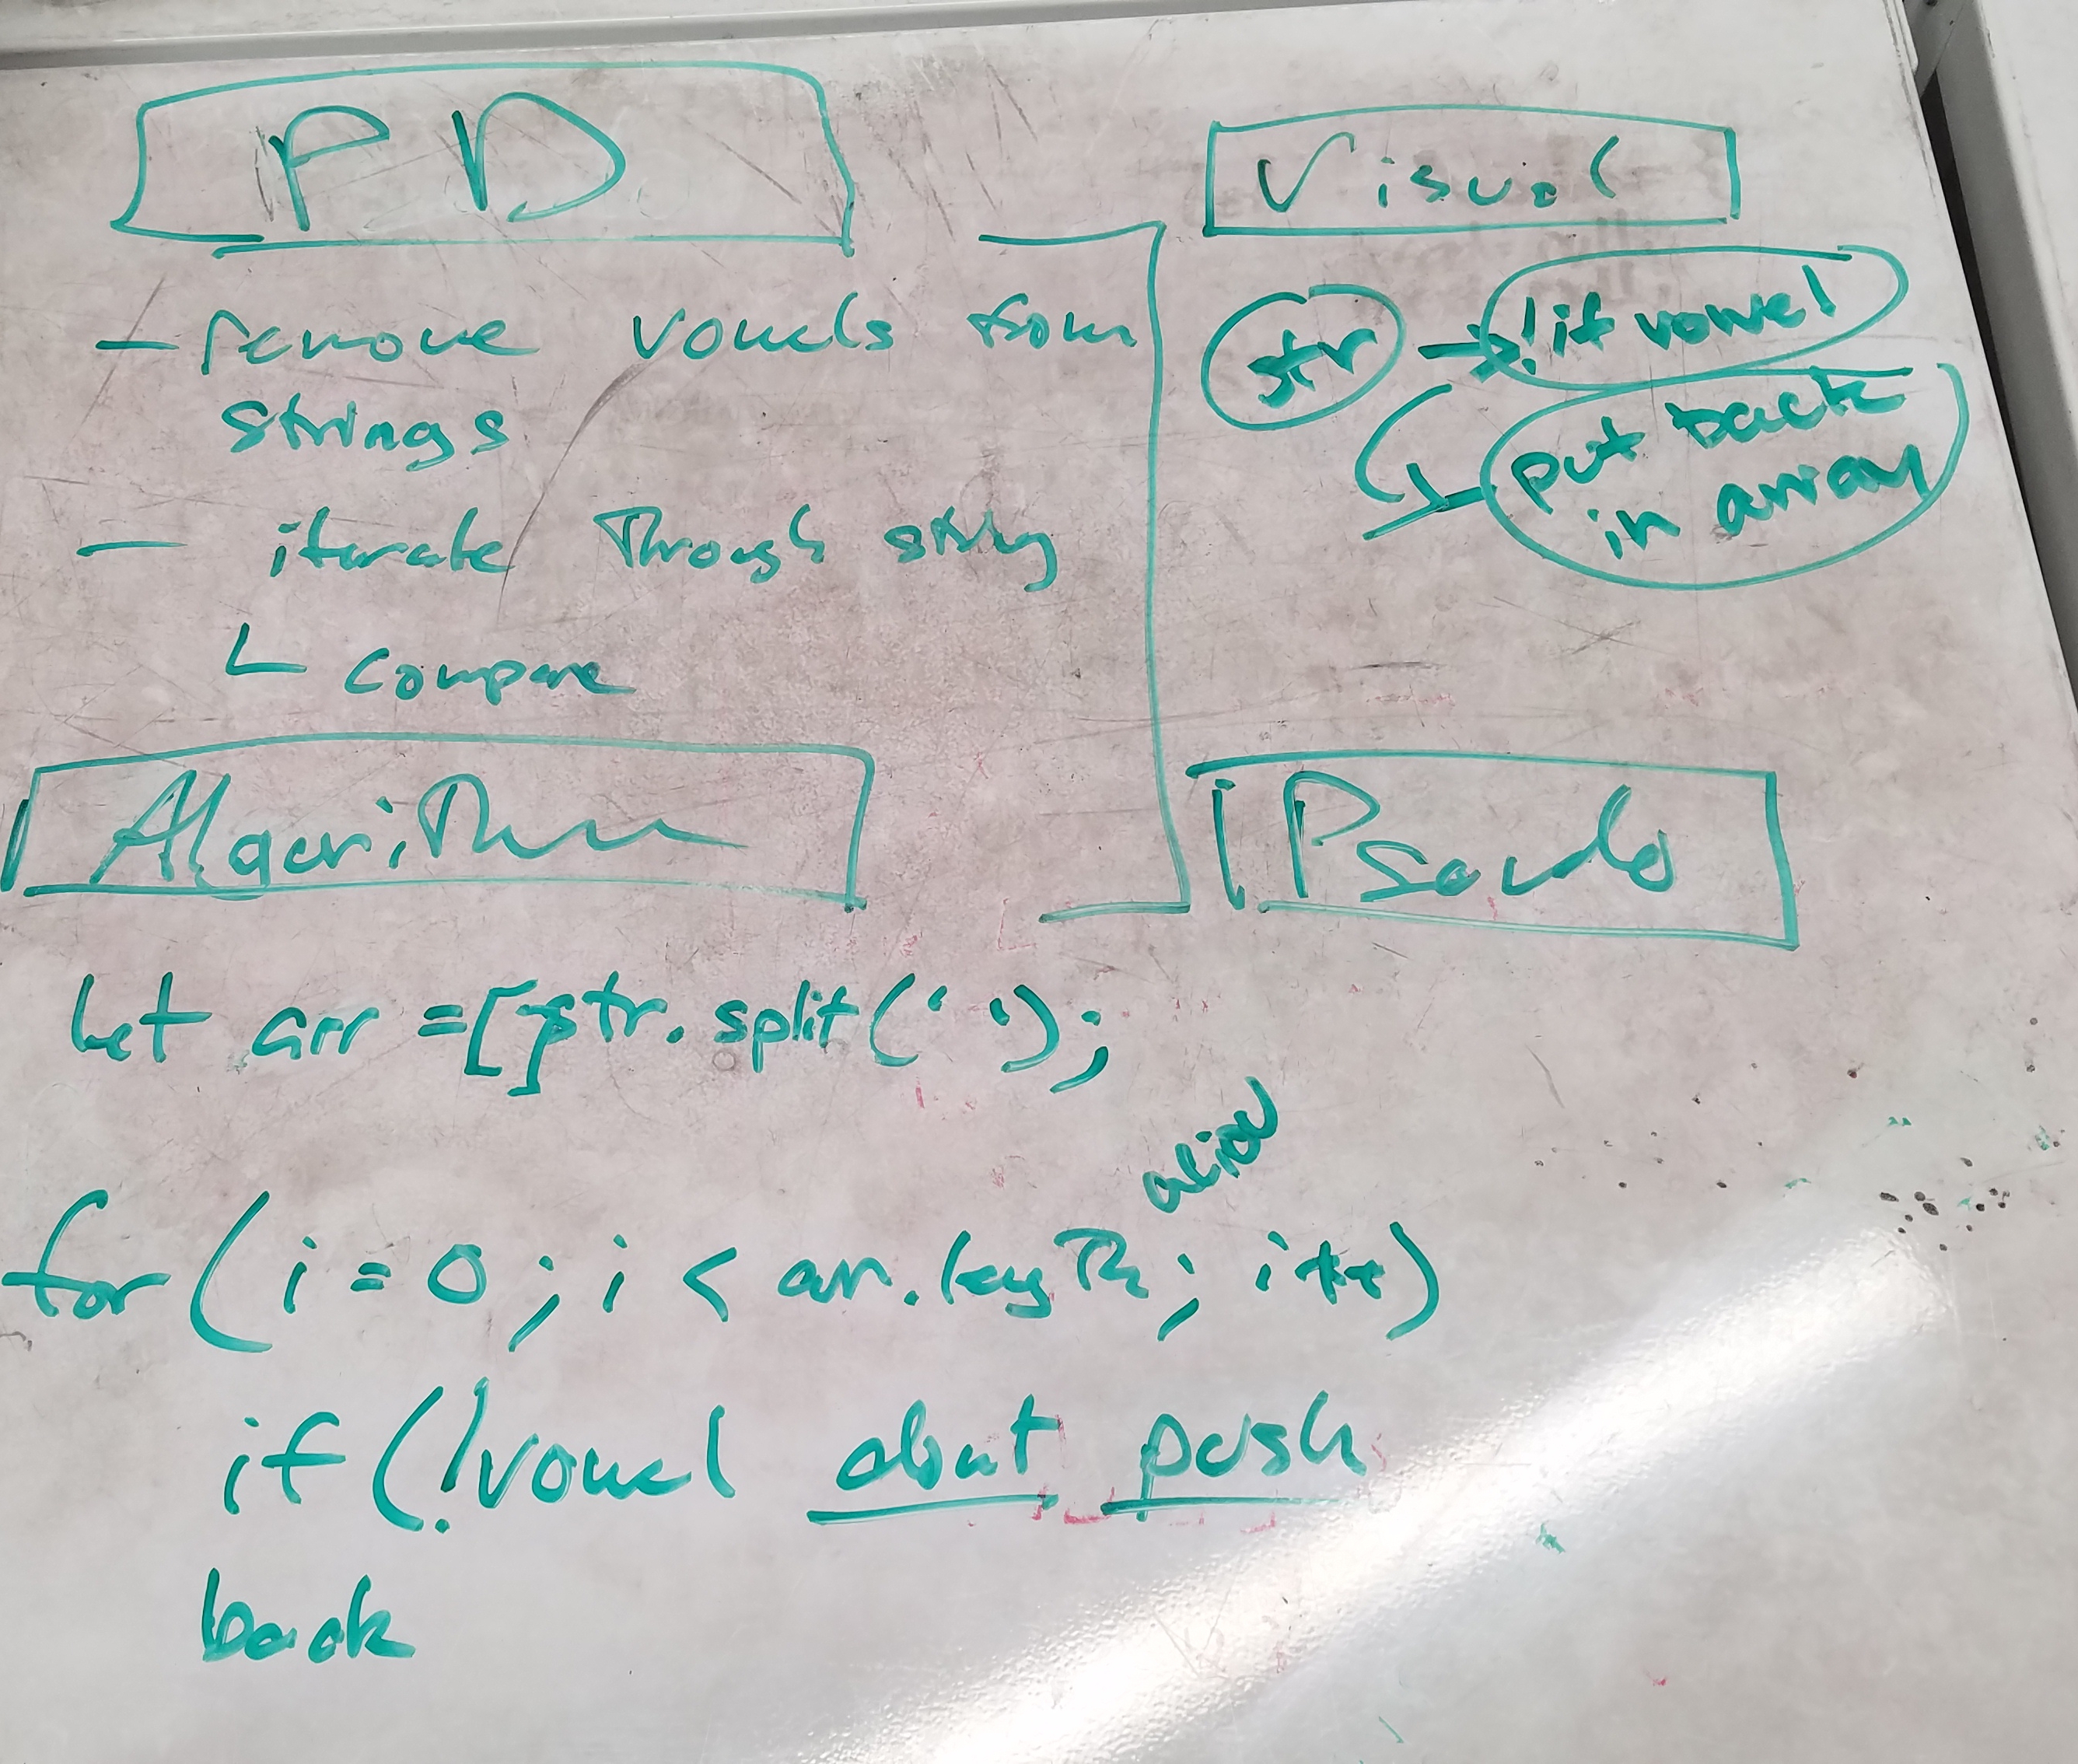 PD
- remove vowels from
strings
- iterate Through string
L compare
Visual
str → !if vowel
put back
in array
Algorithm
Pseudo
let arr =[]str.split(' ');
for (i = 0; i < arr.length; i++)
if (!vowel push
back